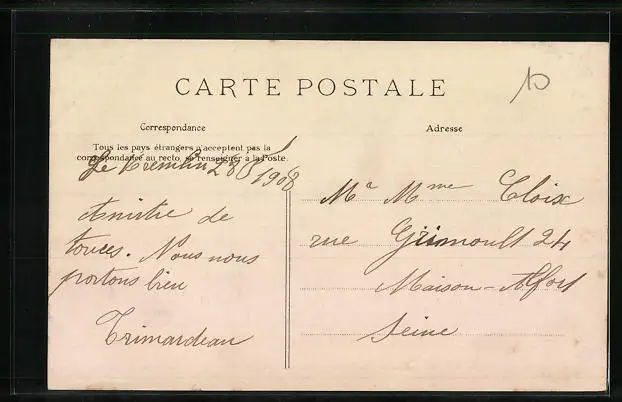 CARTE POSTALE
Correspondance
Adresse
Tous les pays étrangers n'acceptent pas la
correspondance au recto, se renseigner à la Poste.
Le Kremlin 28 1908
de
toutes. Nous nous
portons bien
Trimardeau
Mme Cloix
rue Grimoult 24
Maison-Alfort
Seine